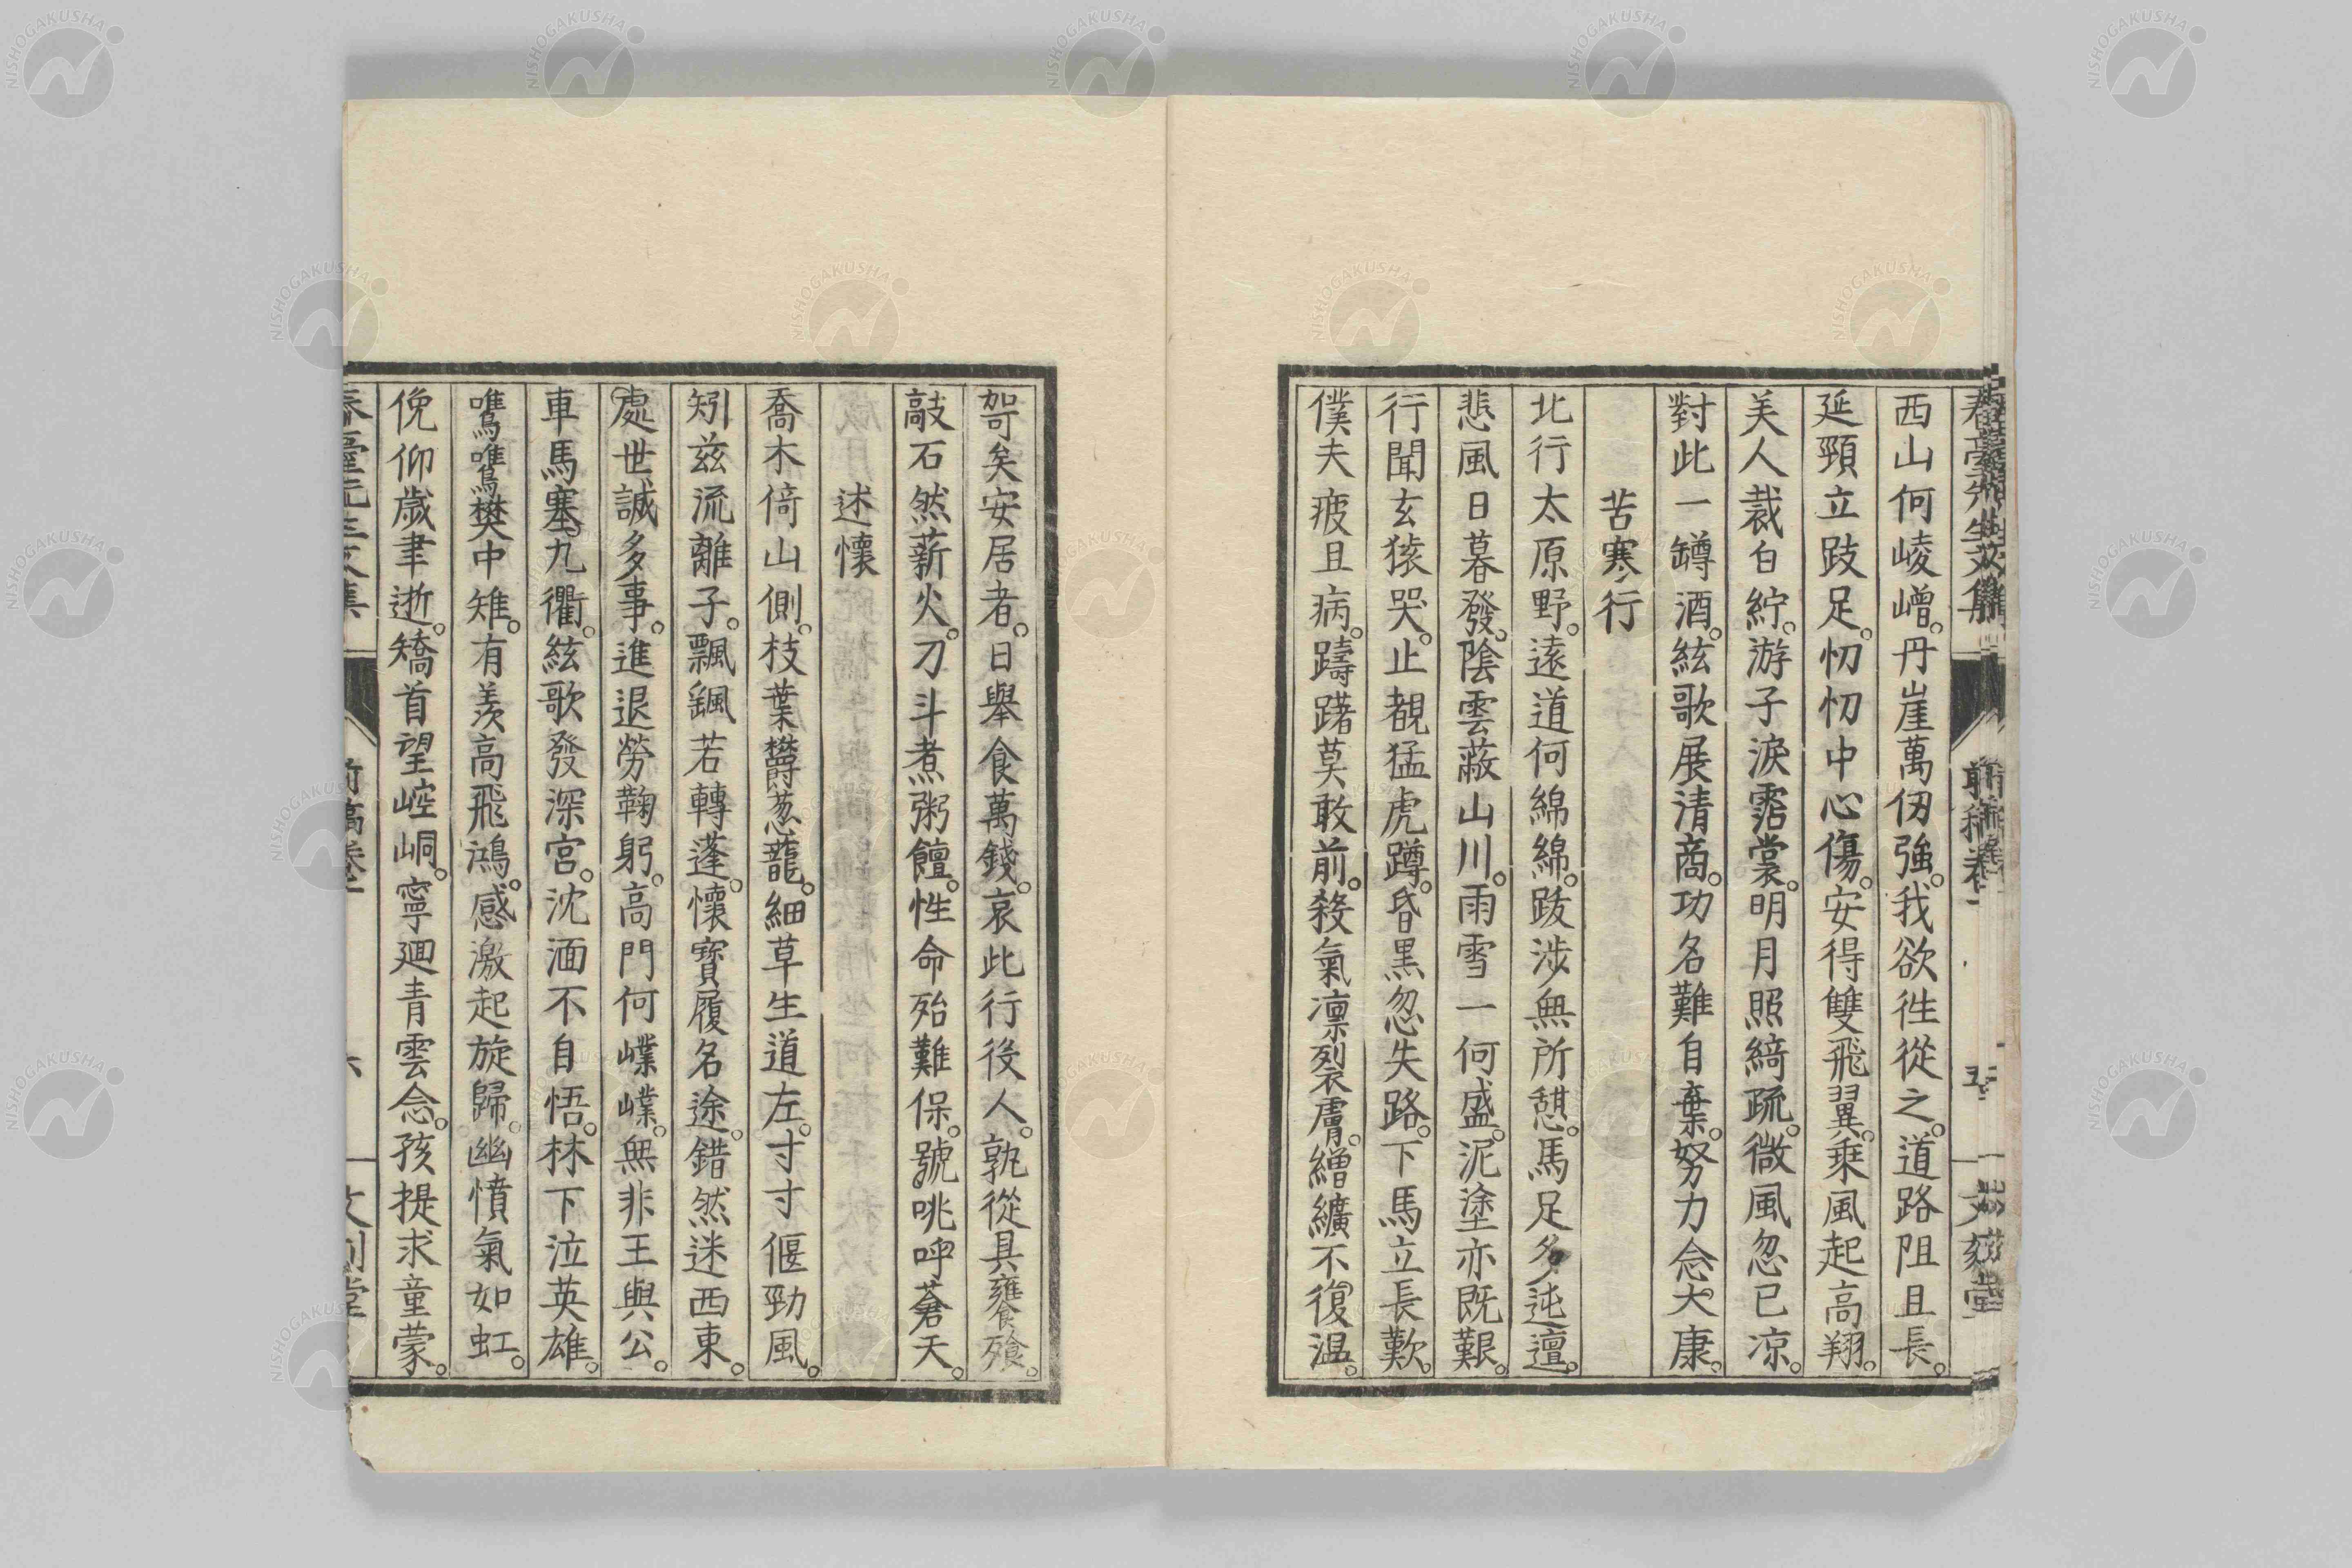 西山何崚嶒。丹崖萬仞強。我欲徃從之。道路阻且長。
延頸立跂足。忉忉中心傷。安得雙飛翼。乗風起高翔。
美人裁白紵。游子淚霑裳。明月照綺疏。微風忽已凉。
對此一罇酒。絃歌展清商。功名難自棄。努力念大康。
苦寒行
北行太原野。遠道何綿綿。跋涉無所憇。馬足多迍邅。
悲風日暮發。陰雲蔽山川。雨雪一何盛。泥塗亦既艱。
行聞玄猿哭。止覩猛虎蹲。昏黒忽失路。下馬立長歎。
僕夫疲且病。躊躇莫敢前。殺氣凛裂膚。繒纊不復温。
哿矣安居者。日舉食萬錢。哀此行役人。孰從具饔飱。
敲石然薪火。刀斗煮粥饘。性命殆難保。號咷呼蒼天。
述懷
喬木倚山側。枝葉欝葱蘢。細草生道左。寸寸偃勁風。
矧兹流離子。飄飄若轉蓬。懷寶履名途。錯然迷西東。
處世誠多事。進退勞鞠躬。高門何嶫嶫。無非王與公。
車馬塞九衢。絃歌發深宮。沈湎不自悟。林下泣英雄。
嚾嚾樊中雉。有羨高飛鴻。感激起旋歸。幽憤氣如虹。
俛仰歳聿逝。矯首望崆峒。寧廻青雲念。孩提求童蒙。
NISHOGAKUSHA